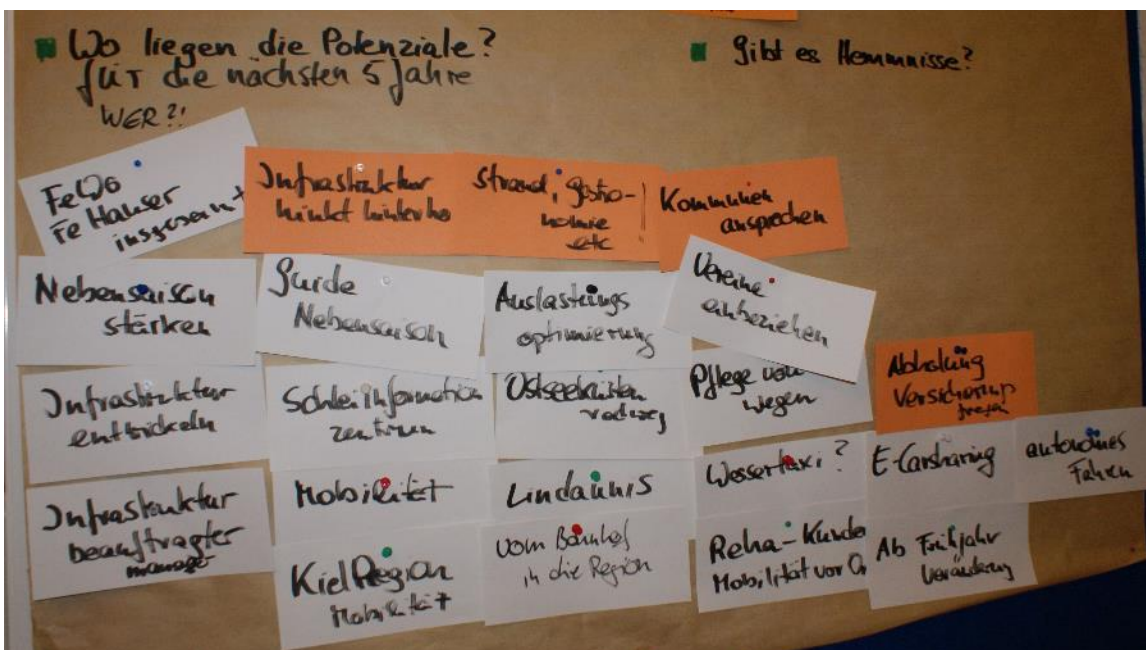 Wo liegen die Potenziale?
für die nächsten 5 Jahre
WER?!
Gibt es Hemmnisse?
FeWo
Fe Häuser
insgesamt
Infrastruktur
hinkt hinterhe
Strand, Gastro-
nomie
etc
Kommunen
ansprechen
Nebensaison
stärken
Guide
Nebensaison
Auslastungs
optimierung
Vereine
einbeziehen
Infrastruktur
entwickeln
Schleiinformation
zentrum
Ostseeküsten
radweg
Pflege von
wegen
Abholung
Versicherung
Infrastruktur
beauftragter
manager
Mobilität
Lindaunis
Wassertaxi?
E-Carsharing
autonomes
Fahren
KielRegion
Mobilität
vom Bahnhof
in die Region
Reha-Kunde
Mobilität vor Or
Ab Frühjahr
Veränderung